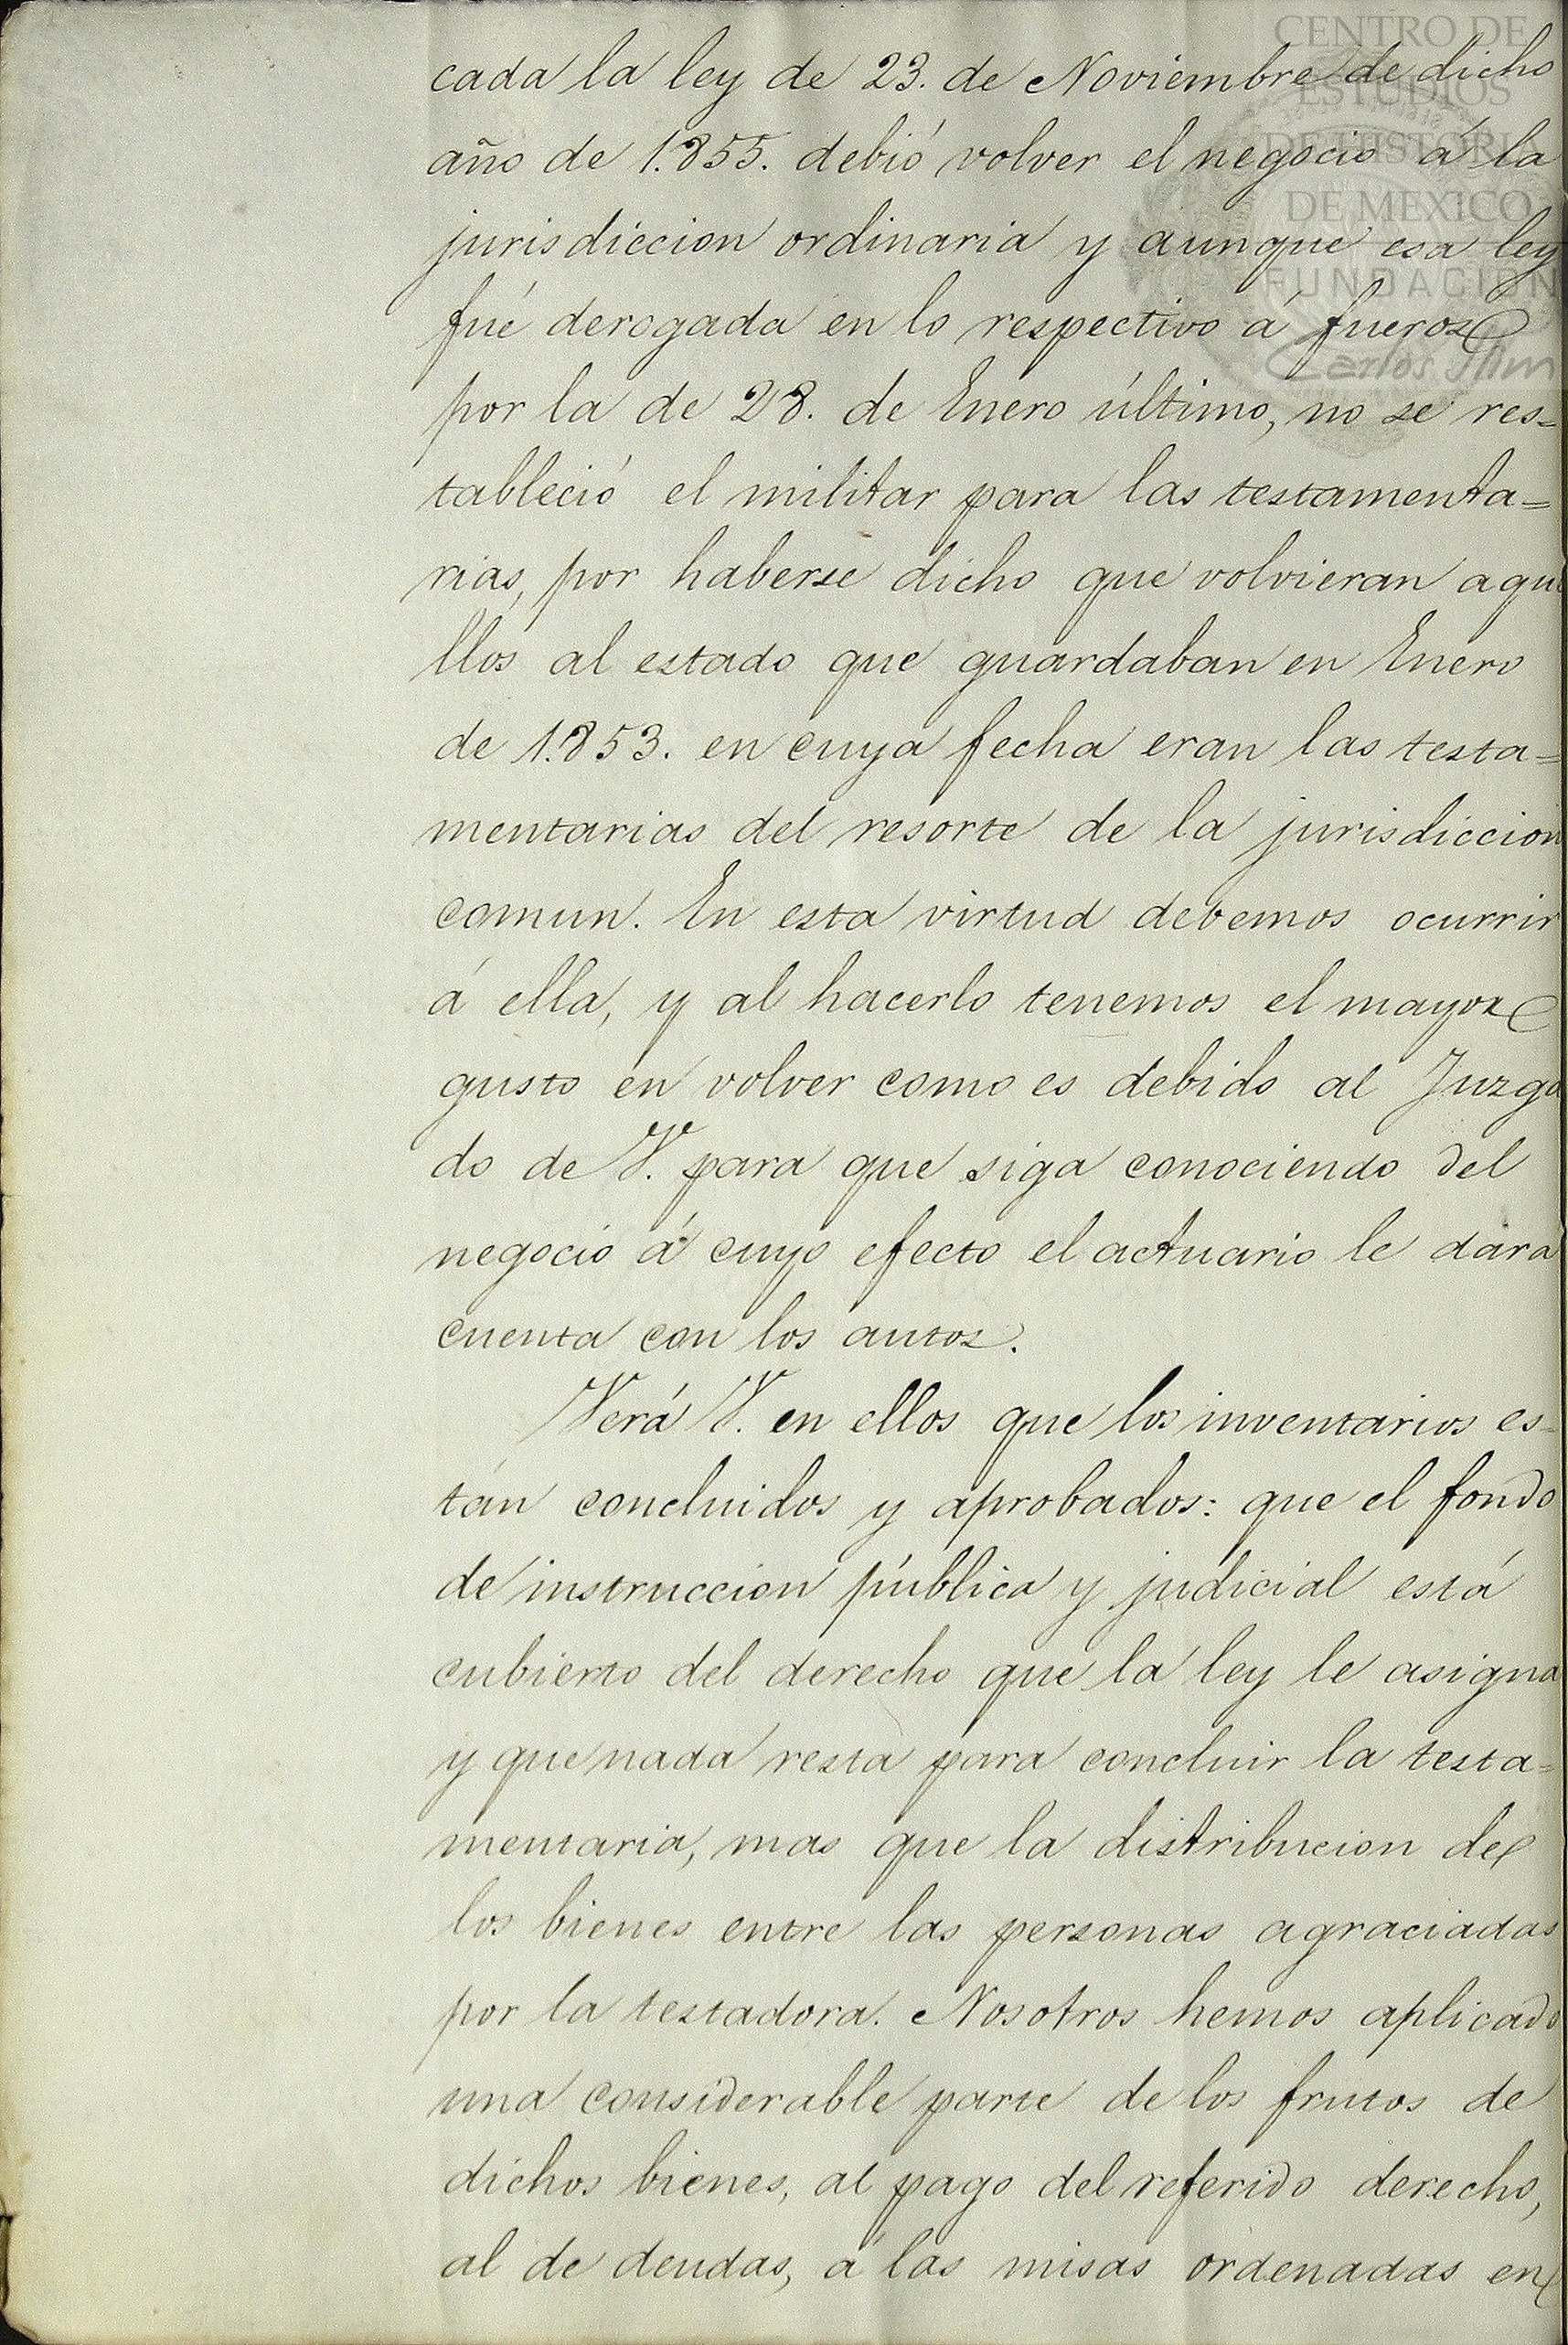 CENTRO DE
ESTUDIOS
DE HISTORIA
DE MEXICO
FUNDACIÓN
Carlos Slim
cada la ley de 23. de Noviembre de dicho
año de 1.855. debió volver el negocio á la
jurisdiccion ordinaria y aunque esa ley
fué derogada en lo respectivo á fueros
por la de 28. de Enero último, no se res-
tableció el militar para las testamenta=
rias, por haberse dicho que volvieran aque
llos al estado que guardaban en Enero
de 1.853. en cuya fecha eran las testa=
mentarias del resorte de la jurisdiccion
comun. En esta virtud debemos ocurrir
á ella, y al hacerlo tenemos el mayor
gusto en volver como es debido al Juzga
do de V. para que siga conociendo del
negocio á cuyo efecto el actuario le dará
cuenta con los autos.
Verá V. en ellos que los inventarios es-
tán concluidos y aprobados: que el fondo
de instruccion pública y judicial está
cubierto del derecho que la ley le asigna
y que nada resta para concluir la testa=
mentaria, mas que la distribucion de
los bienes entre las personas agraciadas
por la testadora. Nosotros hemos aplicado
una considerable parte de los frutos de
dichos bienes, al pago del referido derecho,
al de deudas, á las misas ordenadas en